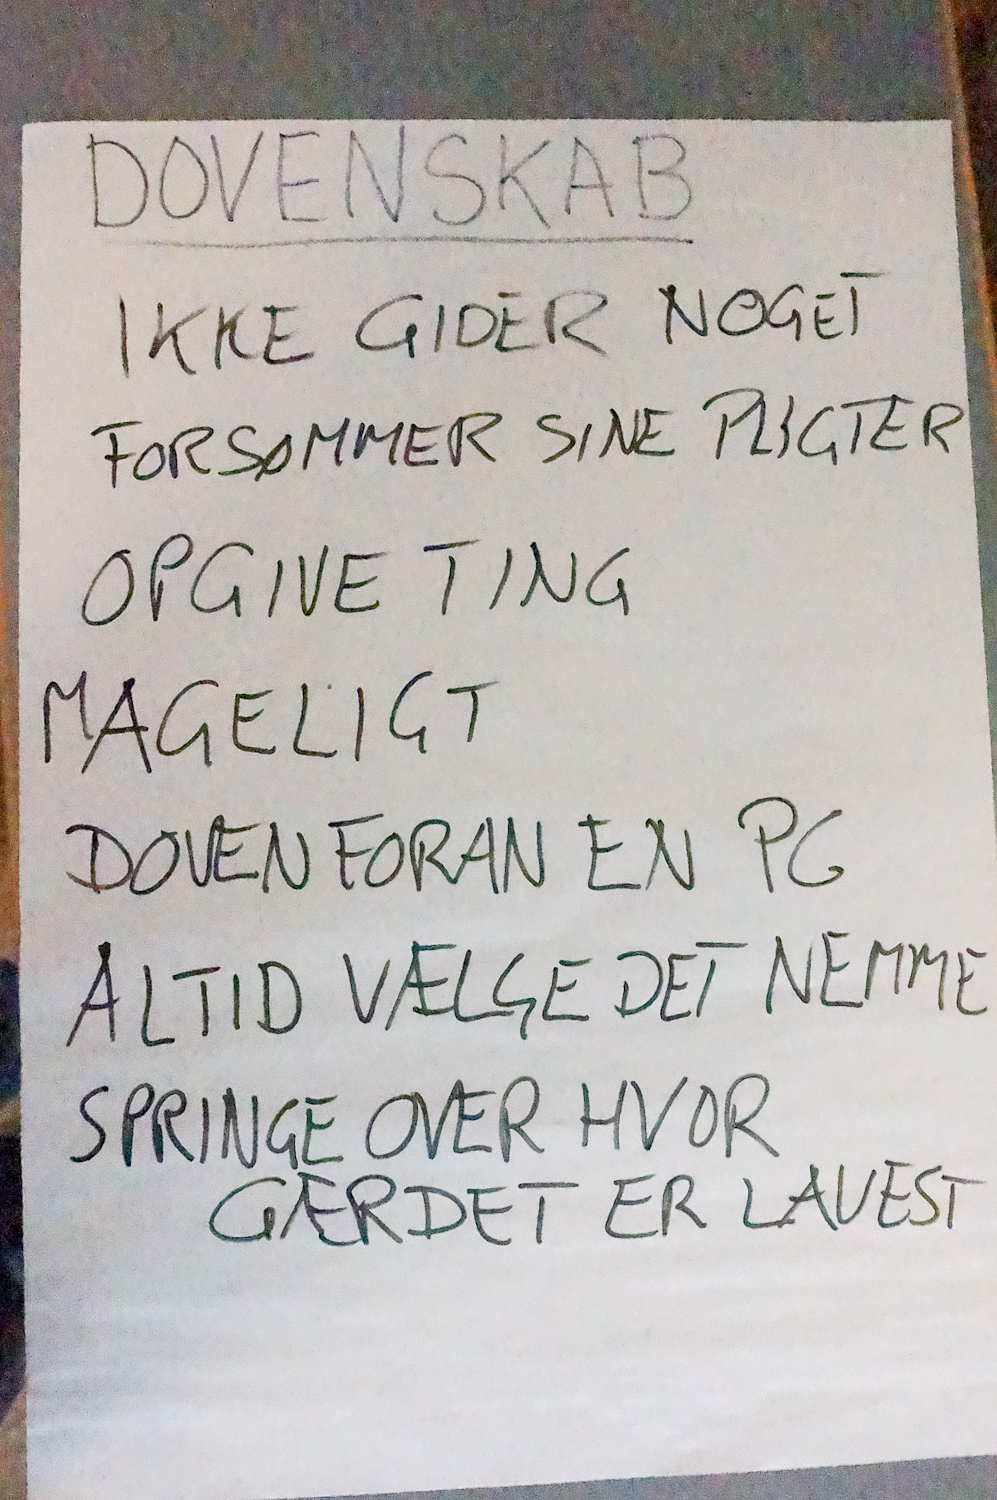 DOVENSKAB
IKKE GIDER NOGET
FORSØMMER SINE PLIGTER
OPGIVE TING
MAGELIGT
DOVEN FORAN EN PC
ALTID VÆLGE DET NEMME
SPRINGE OVER HVOR
GÆRDET ER LAVEST